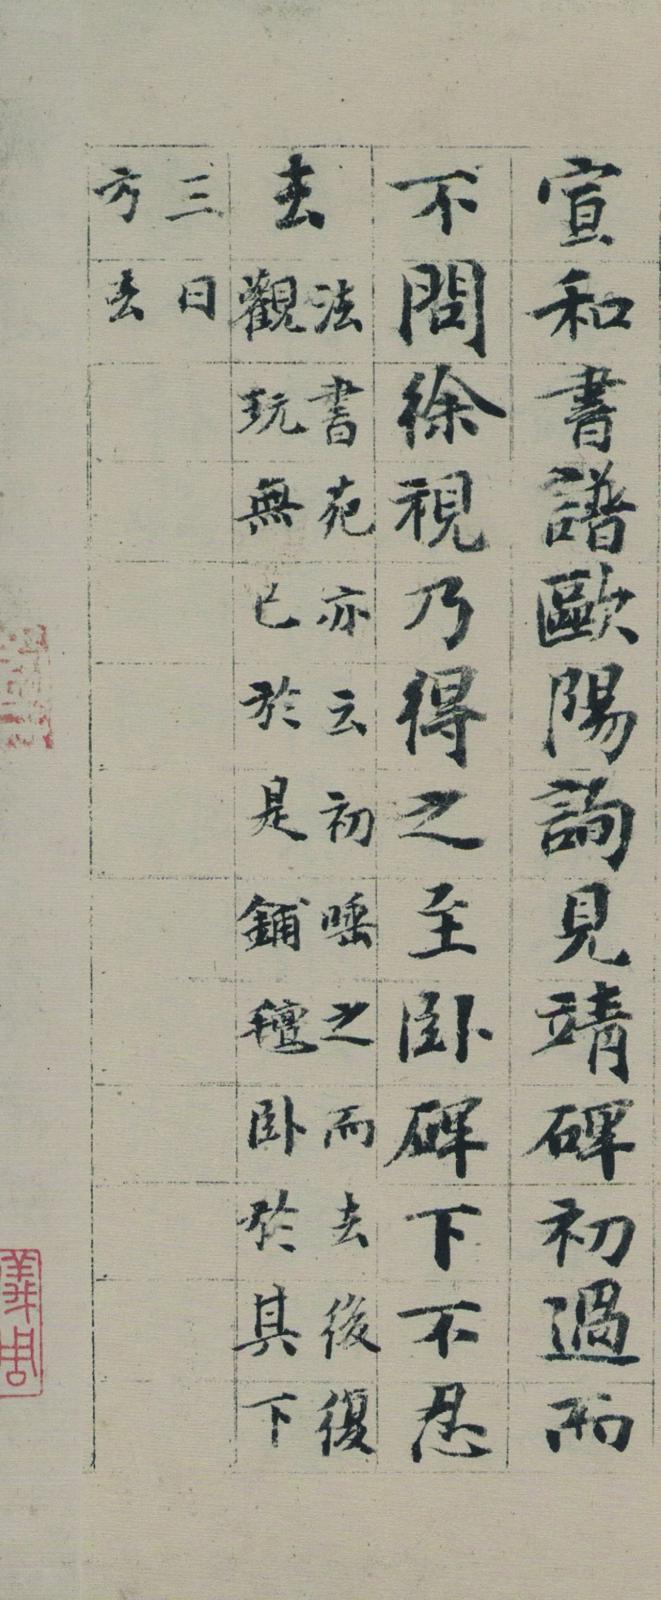 宣和書譜歐陽詢見靖碑初過而
不問徐視乃得之至卧碑下不忍
去法書苑亦云初唾之而去後復
觀玩無已於是鋪氊卧於其下
三日
方去
儀周